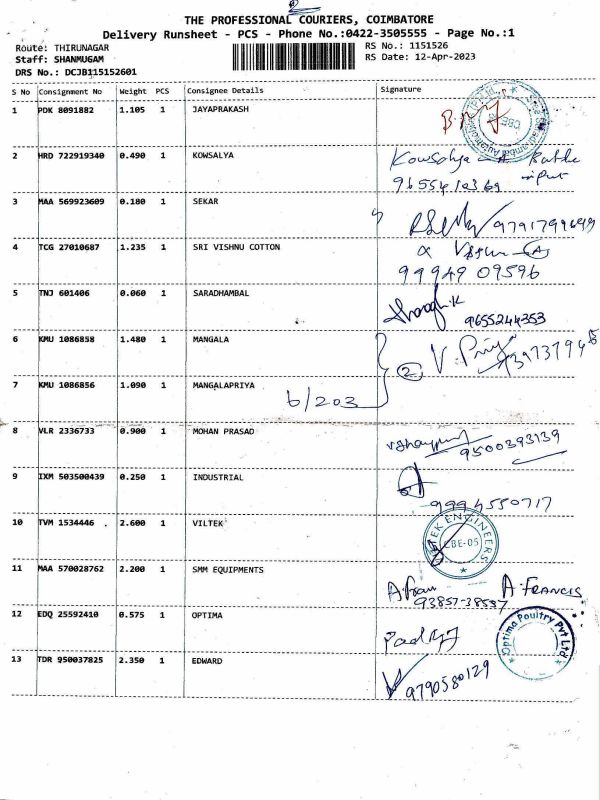 THE PROFESSIONAL COURIERS, COIMBATORE
Delivery Runsheet - PCS - Phone No.:0422-3505555 - Page No.:1
Route: THIRUNAGAR
Staff: SHANMUGAM
DRS No.: DCJB115152601
RS No.: 1151526
RS Date: 12-Apr-2023
S No Consignment No Weight PCS Consignee Details Signature
1 PDK 8091882 1.105 1 JAYAPRAKASH
2 HRD 722919340 0.490 1 KOWSALYA Kowsalya
3 MAA 569923609 0.180 1 SEKAR
4 TCG 27010687 1.235 1 SRI VISHNU COTTON
99949 09596
5 TNJ 601406 0.060 1 SARADHAMBAL
9655244353
6 KMU 1086858 1.480 1 MANGALA 2 V. Priya
7 KMU 1086856 1.090 1 MANGALAPRIYA
6/203
8 VLR 2336733 0.900 1 MOHAN PRASAD
9500393139
9 IXM 503500439 0.250 1 INDUSTRIAL
10 TVM 1534446 2.600 1 VILTEK
ENGINEERS
CBE-05
11 MAA 570028762 2.200 1 SMM EQUIPMENTS
A. FRANCIS
12 EDQ 25592410 0.575 1 OPTIMA
Optima Poultry Pvt Ltd
13 TDR 950037825 2.350 1 EDWARD
9790580129